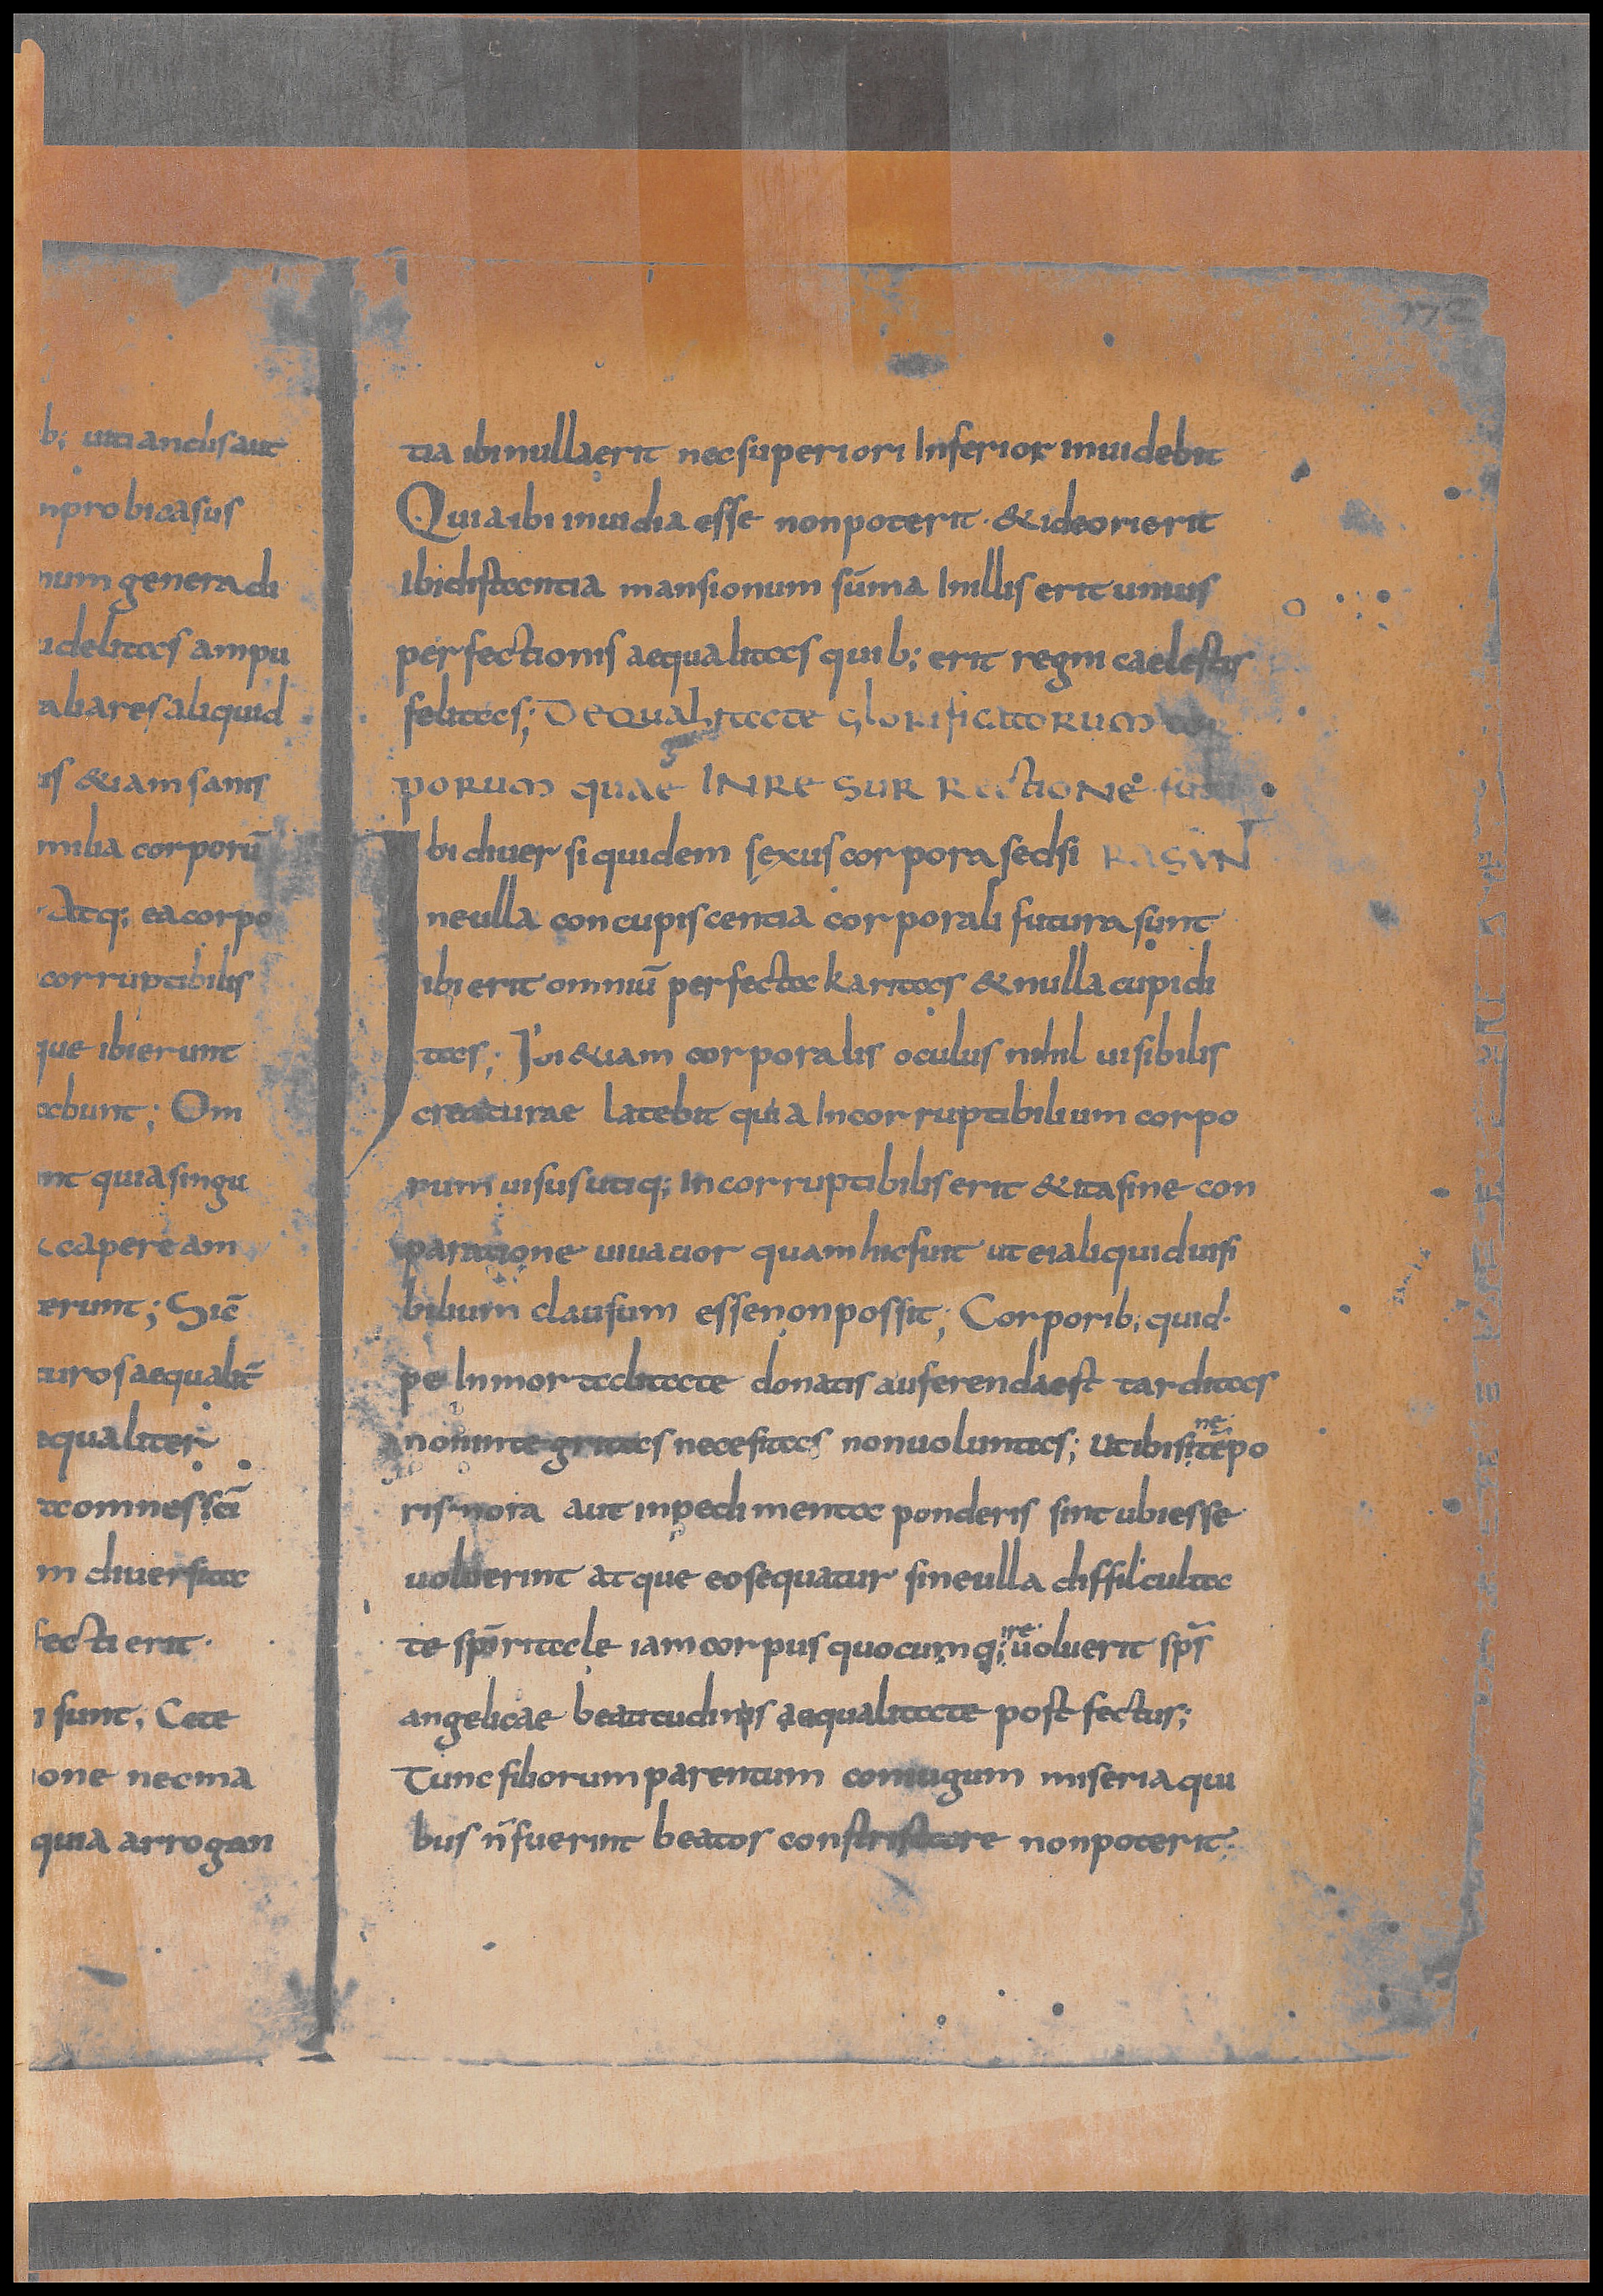 b; uitiandis aut
nprobicasus
num genera di
idelitas ampu
aliares aliquid
is & iam sanis
milia corporū
Atq; ea corpo
corruptibilis
que ibi erunt
abunt; Om
nt quia singu
capere am
erunt; Sic̄
turos aequalit̄
equaliter
omnes sc̄i
m diuersita
fecti erit.
sunt, Cete
one nec ma
quia arrogan
172
tia ibi nulla erit nec superiori Inferior inuidebit
Quia ibi inuidia esse non poterit. & ideo rierit
Ibi distantia mansionum sūma Inillis erit unius
perfectionis aequalitas quib; erit regni caelestis
felitas; De qualitate glorificatorum cor
porum quae IN resurrectione futu
Ibi diuersi quidem sexus corpora sed si RA SUN
ne ulla concupiscentia corporali futura sunt
ibi erit omniū perfecta karitas & nulla cupidi
tas; Ibi & uam corporalis oculus nihil uisibilis
creaturae latebit quia Incorruptibilium corpo
rum uisus utiq; Incorruptibilis erit & ita sine con
paratione uiuacior quam hic fuit ut ei aliquid uisi
bilium clausum esse non possit; Corporib; quid.
pe Inmortalitate donatis auferenda est tarditas
non integritas necesitas non uoluntas; ut ibi si ne tēpo
ris mora aut inpedimenta ponderis sint ubi esse
uoluerint atque eo sequatur sine ulla diffilcultа
te spiritale iam corpus quocumq; ire uoluerit sp̄s
angelicae beatitudinis aequalitate post fectus;
Tunc filiorum parentum coniugum miseria qui
bus n̄ fuerint beatos constristare non poterit.